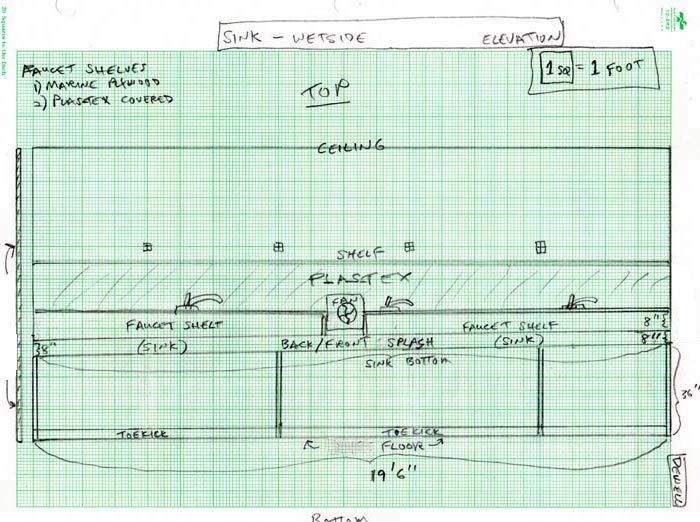 SINK - WETSIDE ELEVATION
20 Squares to the Inch
FAUCET SHELVES
1) MARINE PLYWOOD
2) PLASTEX COVERED
TOP
1 SQ = 1 FOOT
CEILING
SHELF
PLASTEX
FAN
FAUCET SHELF
FAUCET SHELF
8"
(SINK)
BACK/FRONT SPLASH
(SINK)
8"
8"
SINK BOTTOM
36"
TOEKICK
TOEKICK
FLOOR
19'6"
DEWELL
Bottom